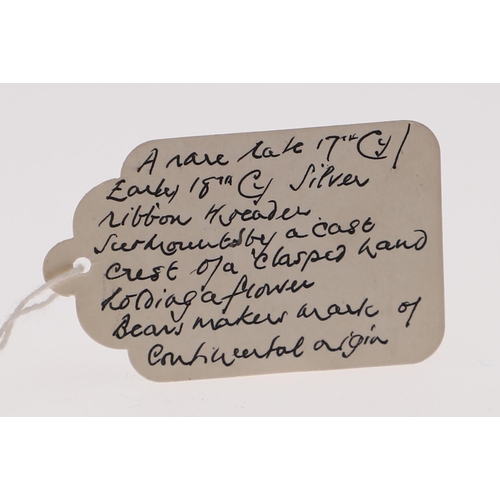 A rare late 17TH Cy/
Early 18TH Cy Silver
ribbon threader
Surmounted by a cast
crest of a 'clasped hand
holding a flower
Bears makers mark of
Continental origin